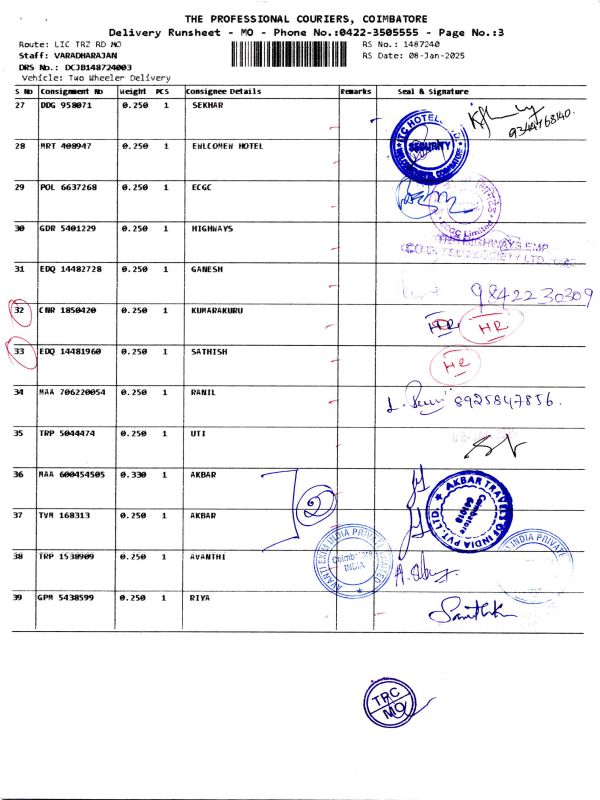 THE PROFESSIONAL COURIERS, COIMBATORE
Delivery Runsheet - MO - Phone No.:0422-3505555 - Page No.:3
Route: LIC TRZ RD MO RS No.: 1487240
Staff: VARADHARAJAN RS Date: 08-Jan-2025
DRS No.: DCJB148724003
Vehicle: Two Wheeler Delivery
S No Consignment No Weight PCS Consignee Details Remarks Seal & Signature
27 DDG 958071 0.250 1 SEKHAR
9344768140.
ITC HOTEL
SECURITY
28 MRT 408947 0.250 1 EWLCOMEW HOTEL
29 POL 6637268 0.250 1 ECGC
ECGC Limited
30 GDR 5401229 0.250 1 HIGHWAYS
HIGHWAYS EMP
SOCIETY LTD
31 EDQ 14482728 0.250 1 GANESH
9842230309
32 CNR 1850420 0.250 1 KUMARAKURU
HR
33 EDQ 14481960 0.250 1 SATHISH
HR
34 MAA 706220054 0.250 1 RANIL
8925847856.
35 TRP 5044474 0.250 1 UTI
36 MAA 600454505 0.330 1 AKBAR
2
AKBAR TRAVELS OF INDIA PVT. LTD.
Coimbatore
641018
37 TVM 168313 0.250 1 AKBAR
38 TRP 1538909 0.250 1 AVANTHI
AVANTI EXIM INDIA PRIVATE LIMITED
INDIA
INDIA PRIVATE
39 GPM 5438599 0.250 1 RIYA
TRC
MO